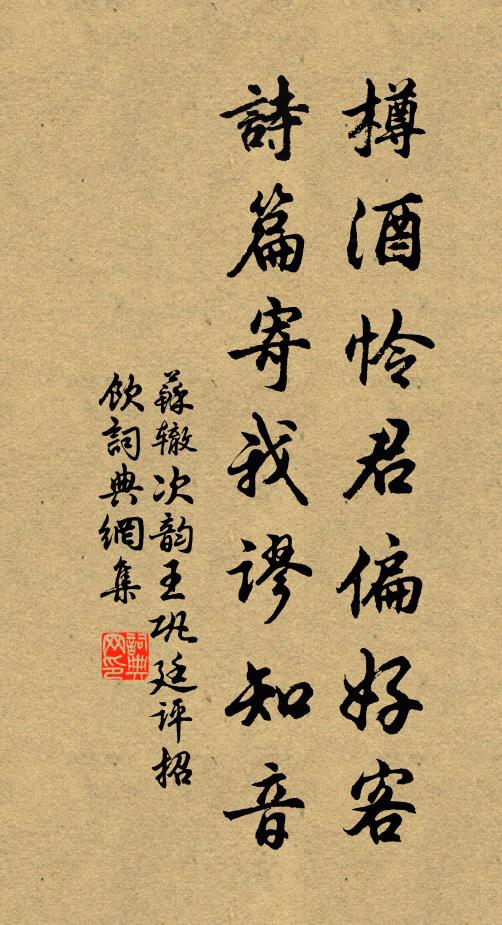 樽酒怜君偏好客
詩篇寄我謬知音
蘇辙次韵王巩廷评招
飲詞典網集
詞典
网印